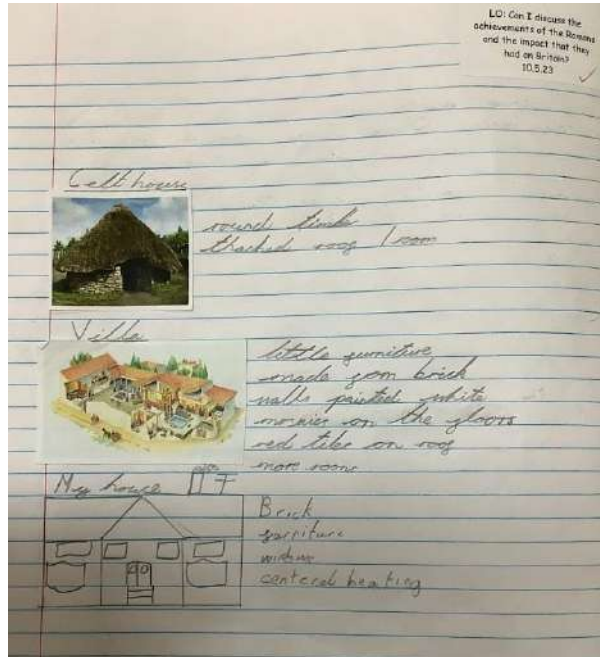 LO: Can I discuss the
achievements of the Romans
and the impact that they
had on Britain?
10.5.23
Celt house
round timb
thached roof 1 room
Villa
little furniture
made from brick
walls painted white
mosaics on the floors
red tiles on roof
more rooms
My house
Brick
furniture
windows
centeral heating